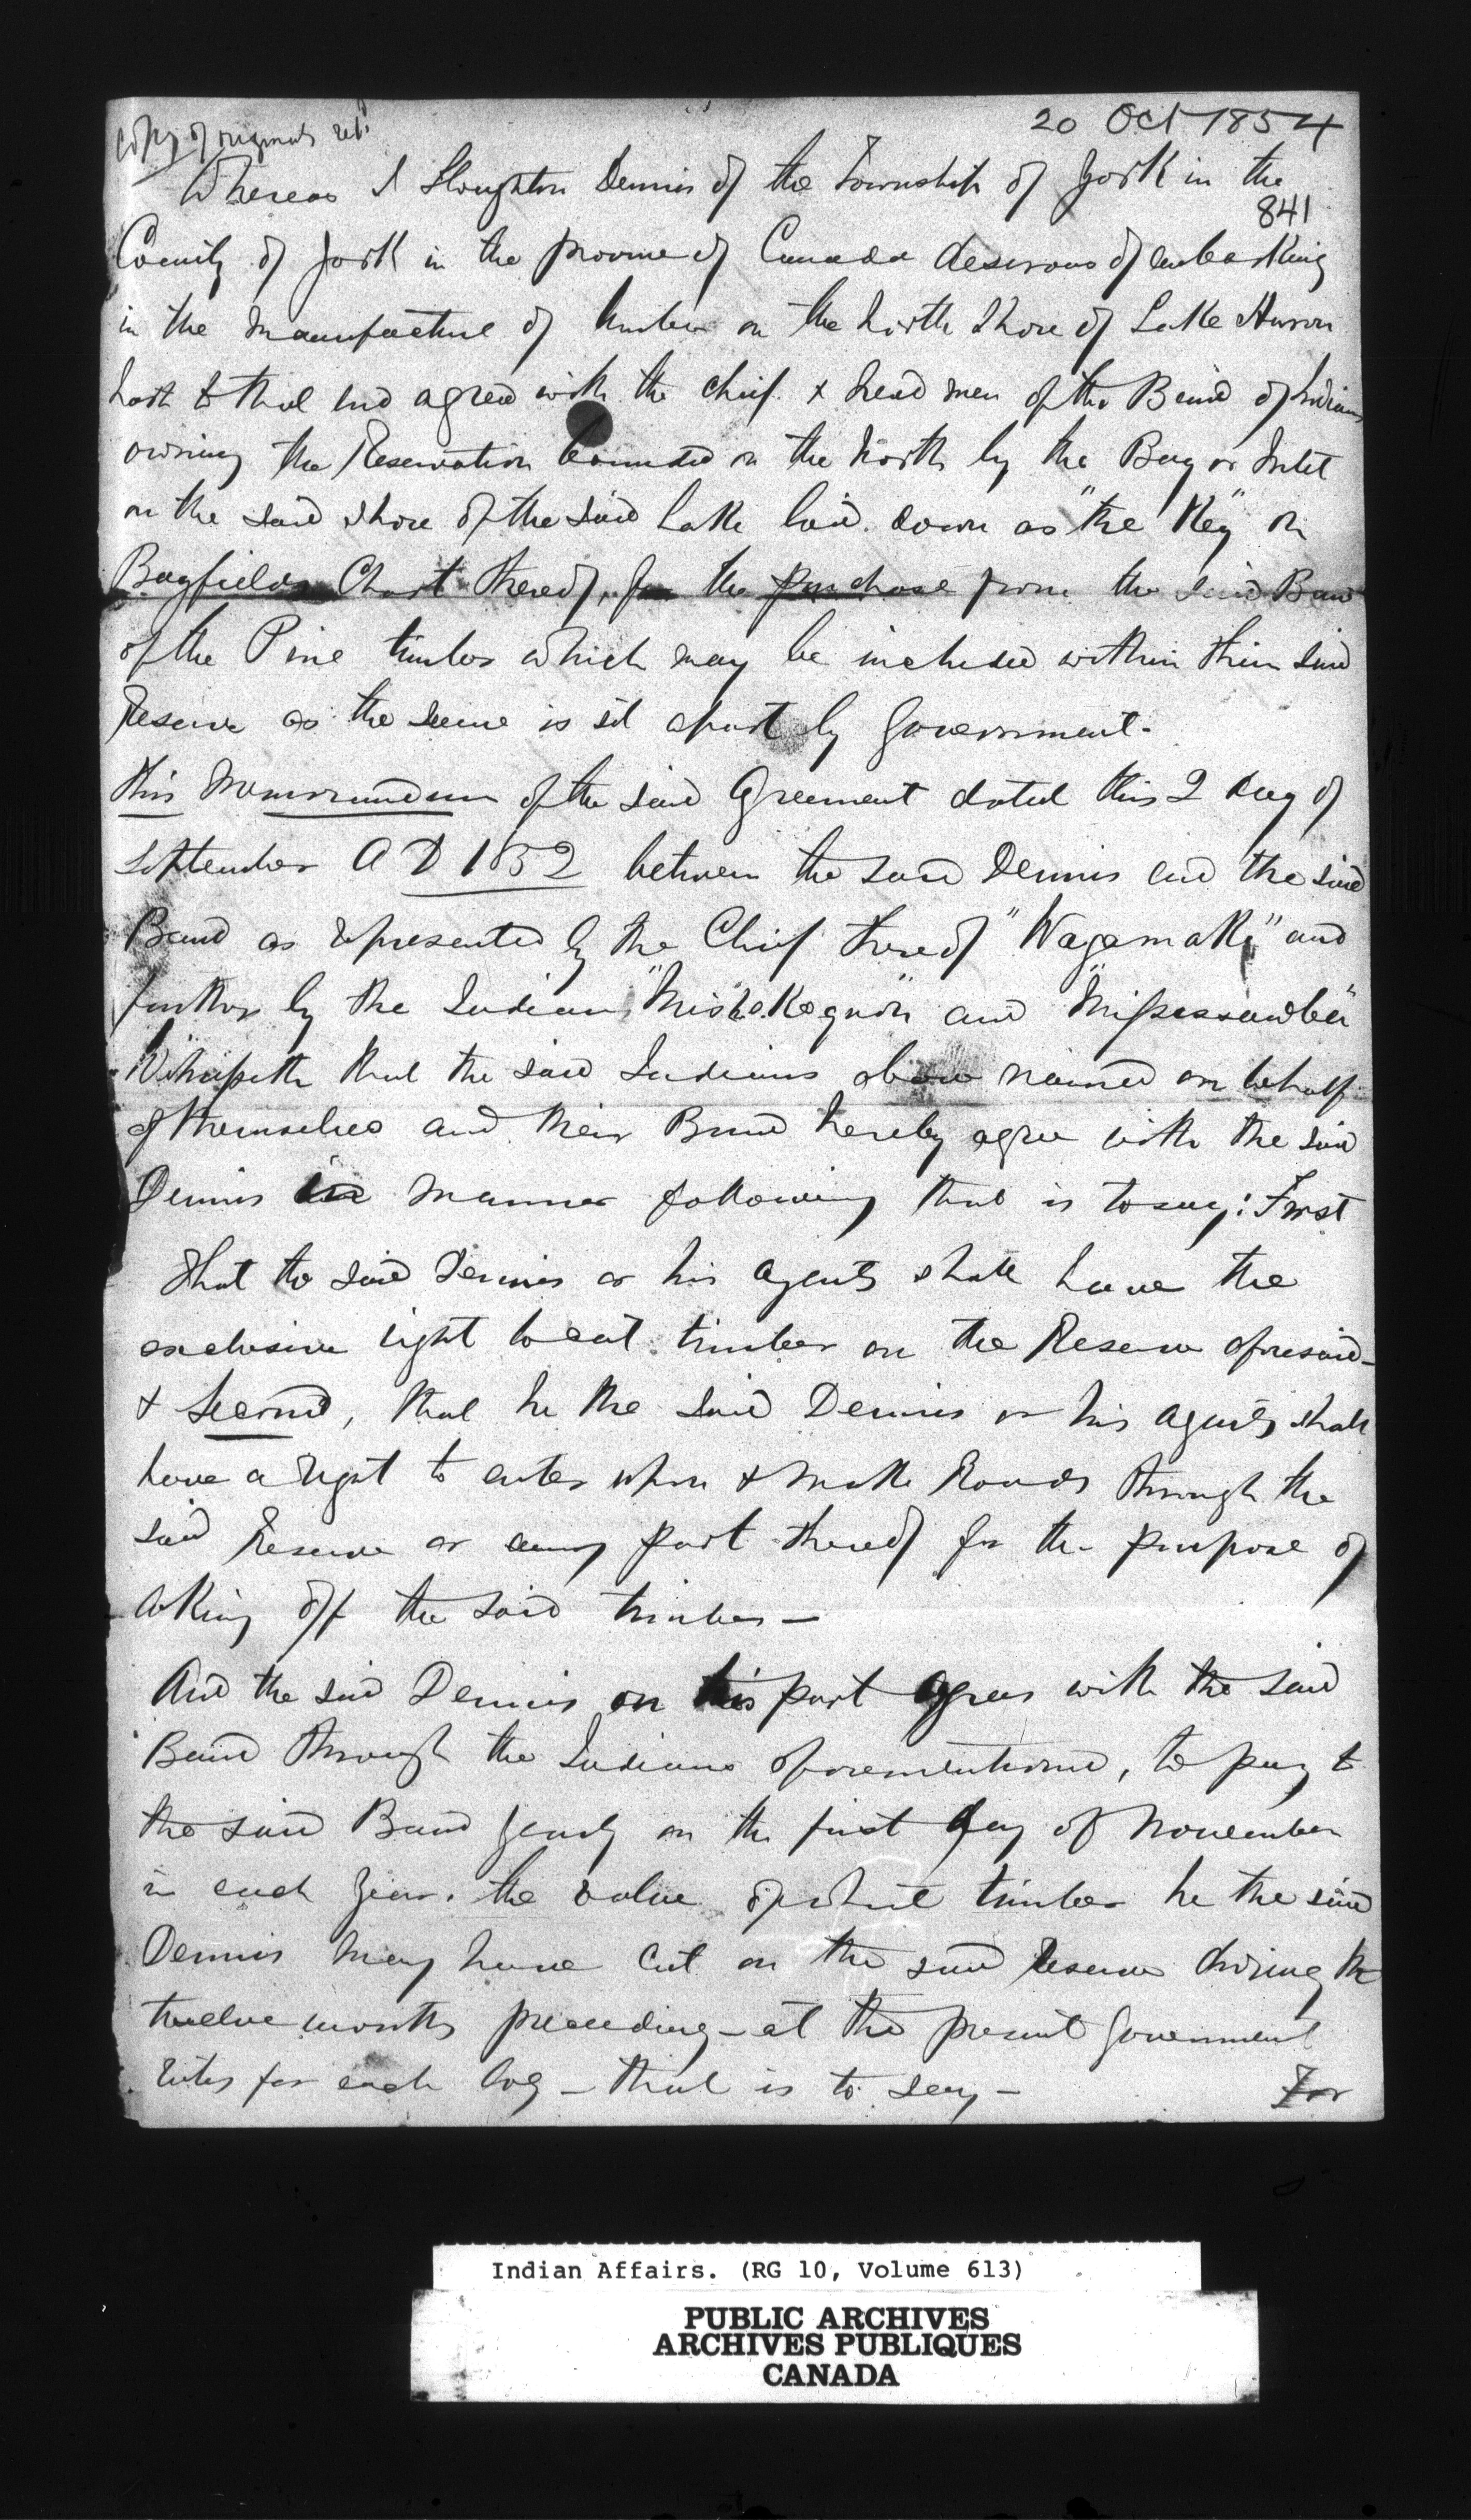 Copy of originals retd
20 Oct 1854
Whereas J Stoughton Dennis of the Township of York in the
841
County of York in the province of Canada desirous of embarking
in the manufacture of lumber on the North Shore of Lake Huron
hath to that end agreed with the chief & head men of the Band of Indians
owning the Reservation bounded on the North by the Bay or Inlet
on the said shore of the said Lake laid down as "the Key" on
Bayfields Chart thereof, for the purchase from the said Band
of the Pine timber which may be included within their said
Reserve as the same is set apart by Government.
This Memorandum of the said Agreement dated this 2 day of
September A D 1852 between the said Dennis and the said
Band as represented by the Chief thereof "Wagamake" and
further by the Indians and
Witnesseth that the said Indians above named on behalf
of themselves and their Band hereby agree with the said
Dennis in manner following that is to say: First
That the said Dennis or his agents shall have the
exclusive right to cut timber on the Reserve aforesaid -
& Second, that he the said Dennis or his agents shall
have a right to enter upon & make Roads through the
said Reserve or any part thereof for the purpose of
taking off the said timber —
And the said Dennis on his part agrees with the said
Band through the Indians aforementioned, to pay to
the said Band yearly on the first day of November
in each year. the value of what timber he the said
Dennis may have cut on the said Reserve during the
twelve months preceeding - at the present Government
rates for each log - that is to say -
For
Indian Affairs. (RG 10, Volume 613)
PUBLIC ARCHIVES
ARCHIVES PUBLIQUES
CANADA